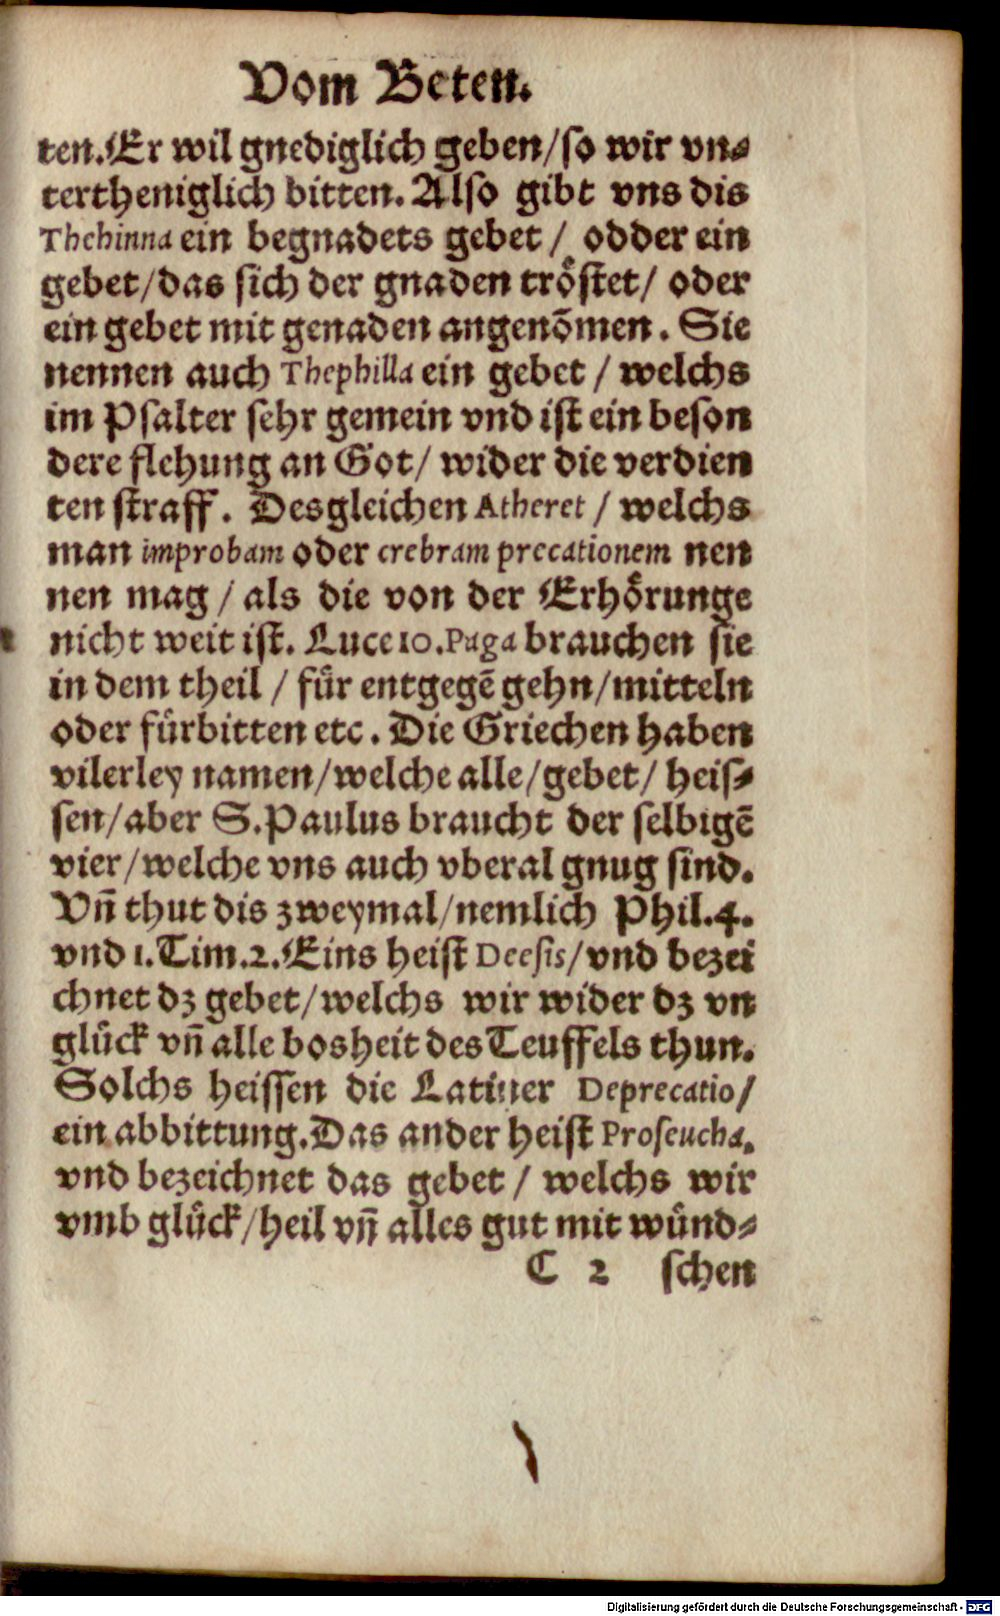 Vom Beten.
ten.Er wil gnediglich geben/so wir vn⸗
tertheniglich bitten. Also gibt vns dis
Thehinna ein begnadets gebet / odder ein
gebet/das sich der gnaden troͤstet/ oder
ein gebet mit genaden angenom̃en. Sie
nennen auch Thephilla ein gebet / welchs
im Psalter sehr gemein vnd ist ein beson
dere flehung an Got/ wider die verdien
ten straff. Desgleichen Atheret / welchs
man improbam oder crebram precationem nen
nen mag / als die von der Erhoͤrunge
nicht weit ist. Luce 10. Paga brauchen sie
in dem theil / fuͤr entgegẽ gehn/mitteln
oder fuͤrbitten etc. Die Griechen haben
vilerley namen/welche alle/gebet/ heis⸗
sen/aber S.Paulus braucht der selbigẽ
vier/welche vns auch vberal gnug sind.
Vñ thut dis zweymal/nemlich Phil.4.
vnd 1.Tim.2.Eins heist Deesis/vnd bezei
chnet dz gebet/welchs wir wider dz vn
gluͤck vñ alle bosheit des Teuffels thun.
Solchs heissen die Latiner Deprecatio/
ein abbittung.Das ander heist Proseucha.
vnd bezeichnet das gebet / welchs wir
vmb gluͤck/heil vñ alles gut mit wuͤnd⸗
C 2 schen
Digitalisierung gefördert durch die Deutsche Forschungsgemeinschaft - DFG